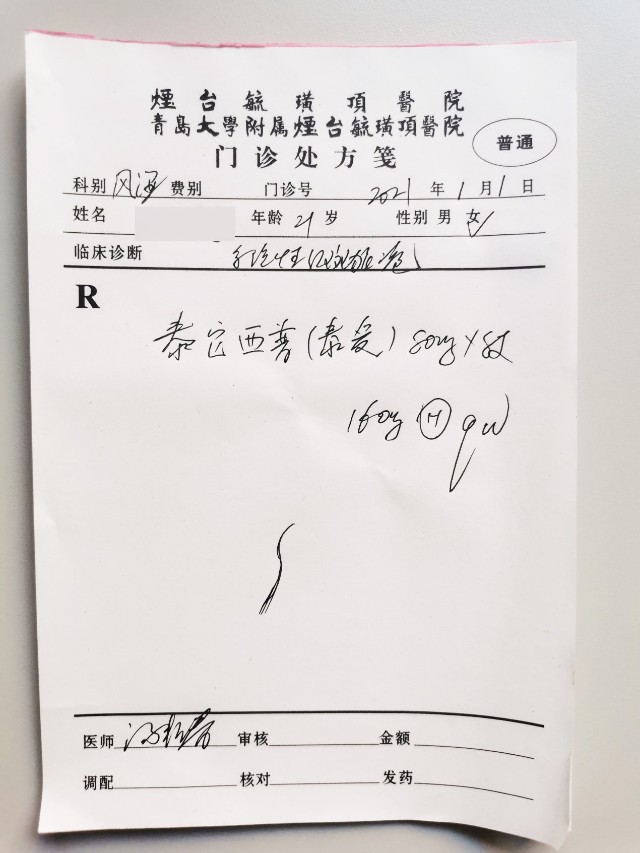 煙台毓璜頂醫院
青島大學附属煙台毓璜頂醫院
门诊处方笺
普通
科别 风湿 费别 门诊号 2021 年 1 月 1 日
姓名 年龄 21 岁 性别 男 女 ✓
临床诊断 系统性红斑狼疮
R
泰它西普(泰爱) 80mg×8支
160mg H qw
医师 审核 金额
调配 核对 发药